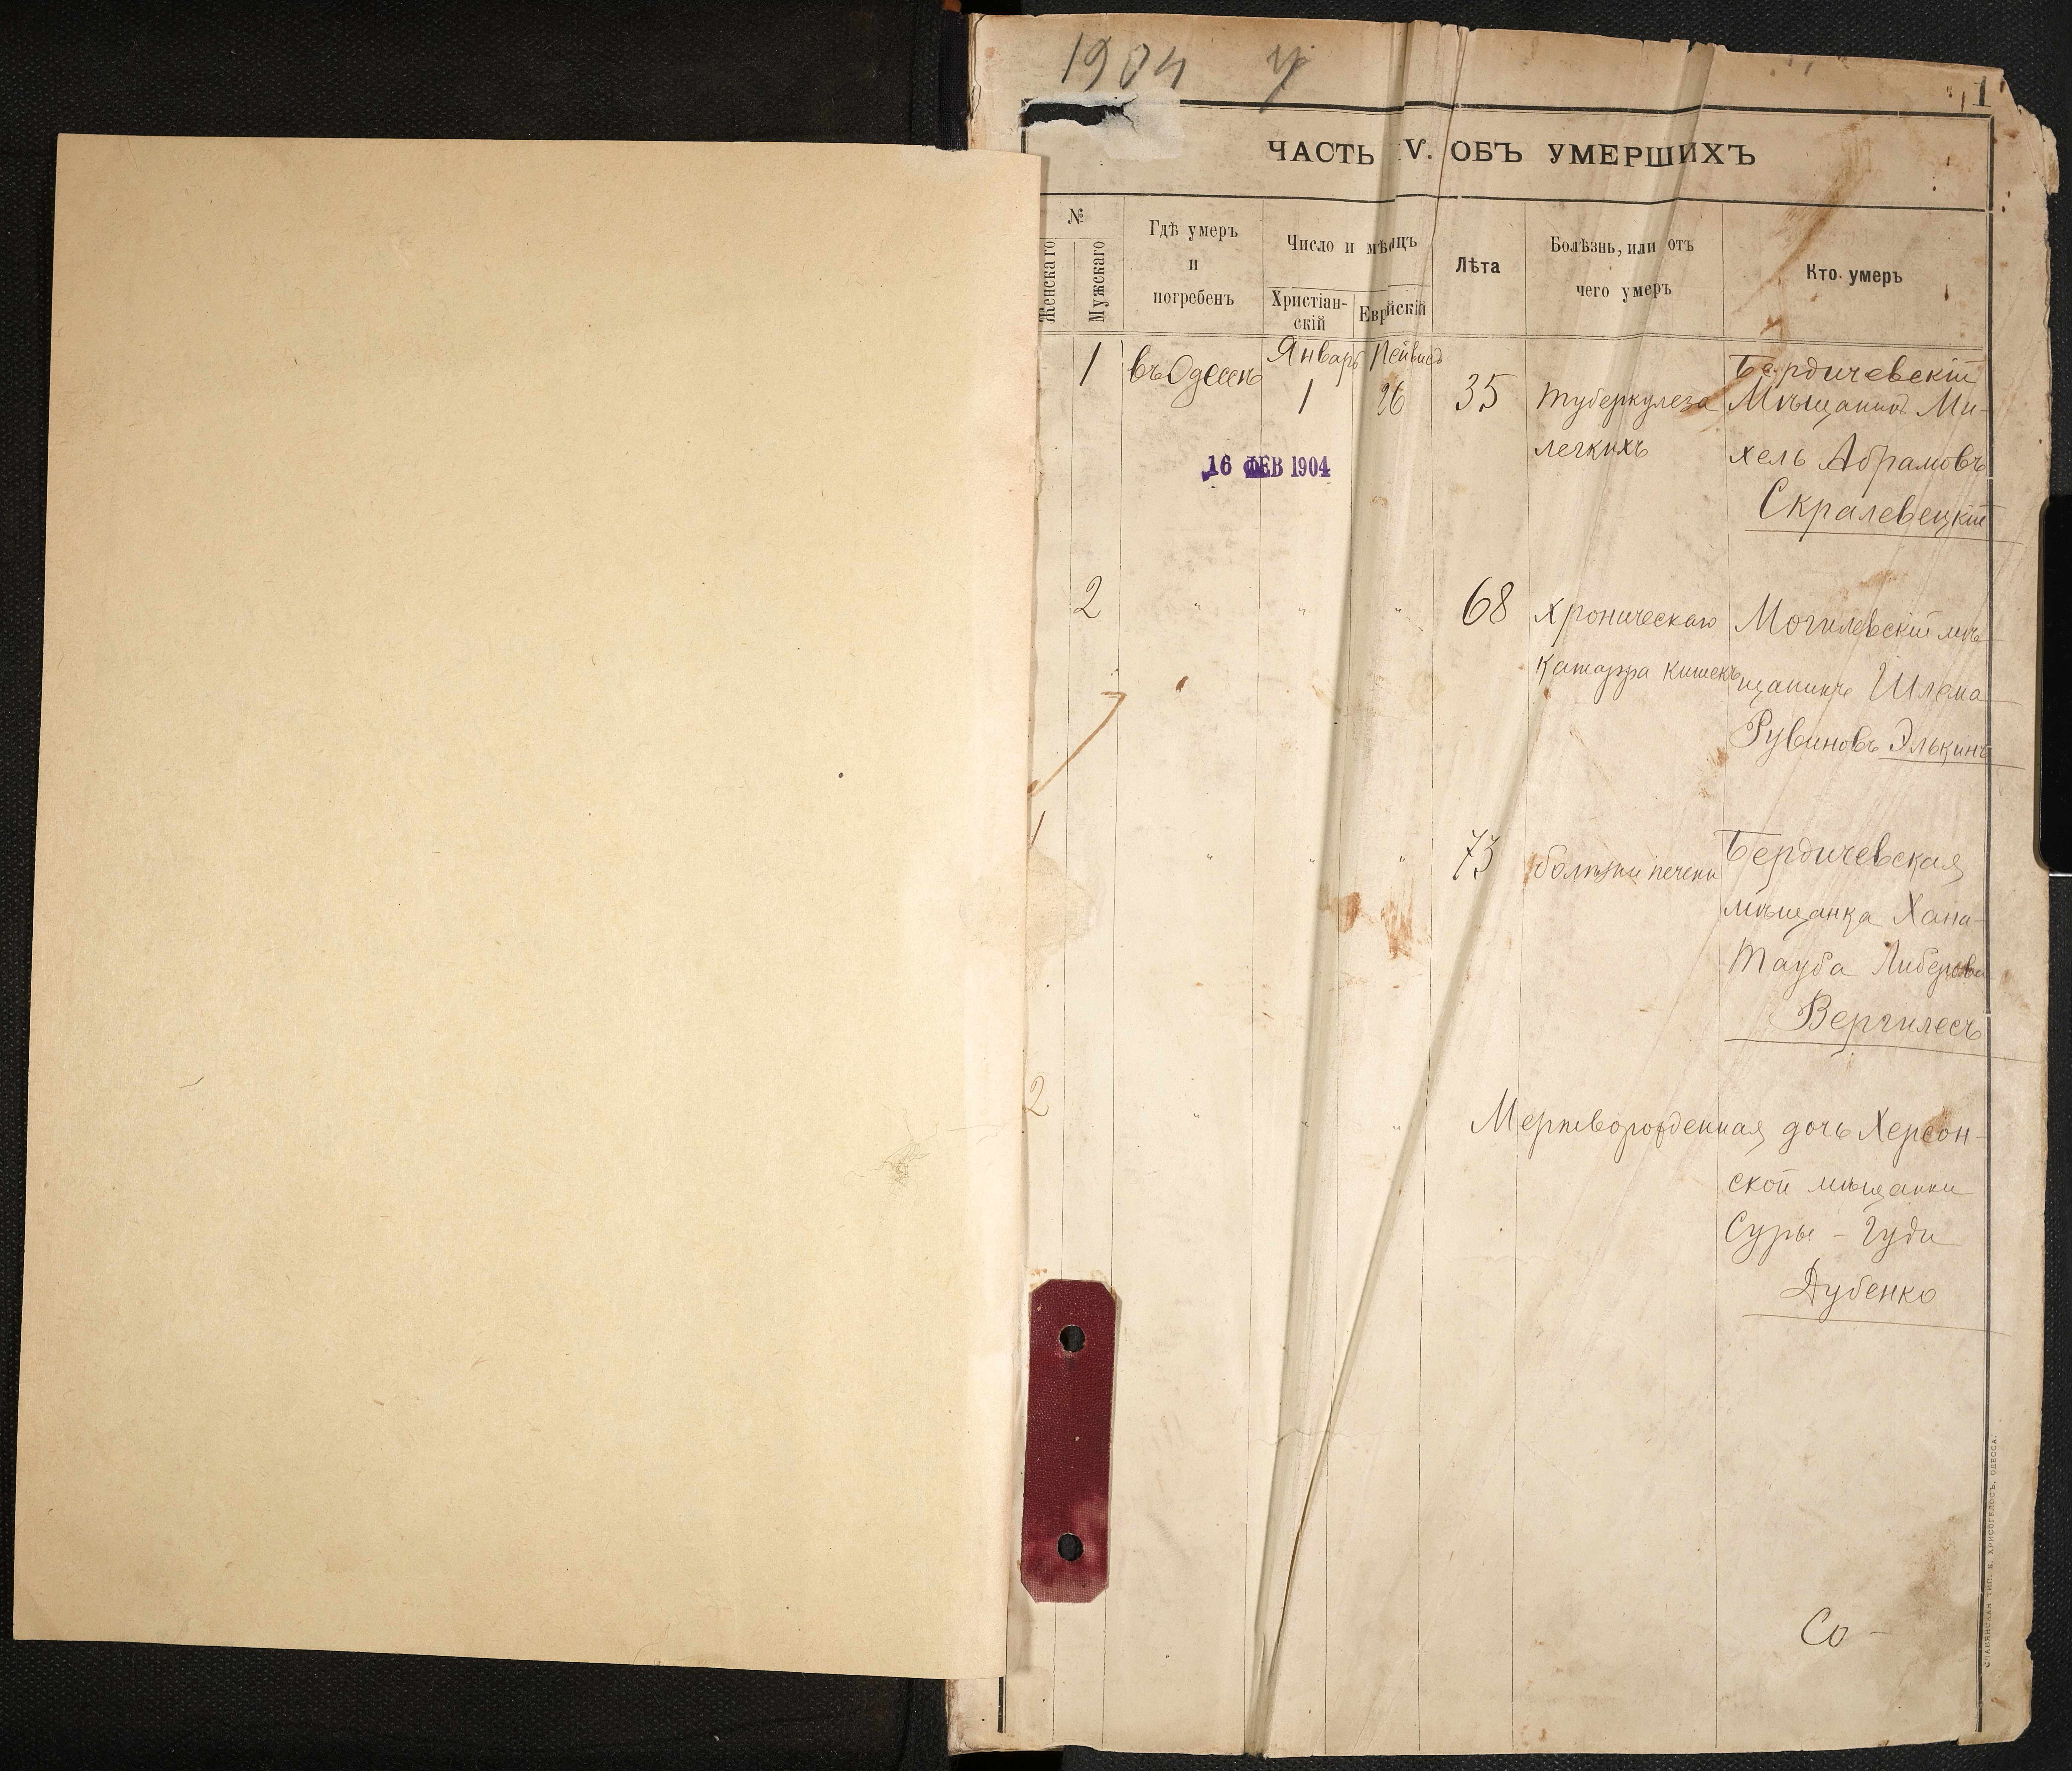 1904 У
1
ЧАСТЬ V. ОБЪ УМЕРШИХЪ
№
Женскаго
Мужскаго
Гдѣ умеръ
и
погребенъ
Число и мѣсяцъ
Христіан-
скій
Еврйскій
Лѣта
Болѣзнь, или отъ
чего умеръ
Кто умеръ
1 въ Одессѣ Январь Тейвисъ
1 26 35
туберкулеза
легкихъ
Бердичевскій
Мѣщанинъ Ми-
хель Абрамовъ
Скралевецкій
16 ФЕВ 1904
2 " " " 68
хроническаго
катарра кишекъ
Могилевскій мѣ-
щанинъ Шлема
Рувиновъ Элькинъ
1 " " " 73
болѣзни печени
Бердичевская
мѣщанка Хана-
Тауба Либерова
Вергилесъ
2 " " "
Мертворожденная дочь Херсон-
ской мѣщанки
Суры - Гуди
Дубенко
Со -
СЛАВЯНСКАЯ ТИП. Е. ХРИСОГЕЛОСЪ, ОДЕССА.